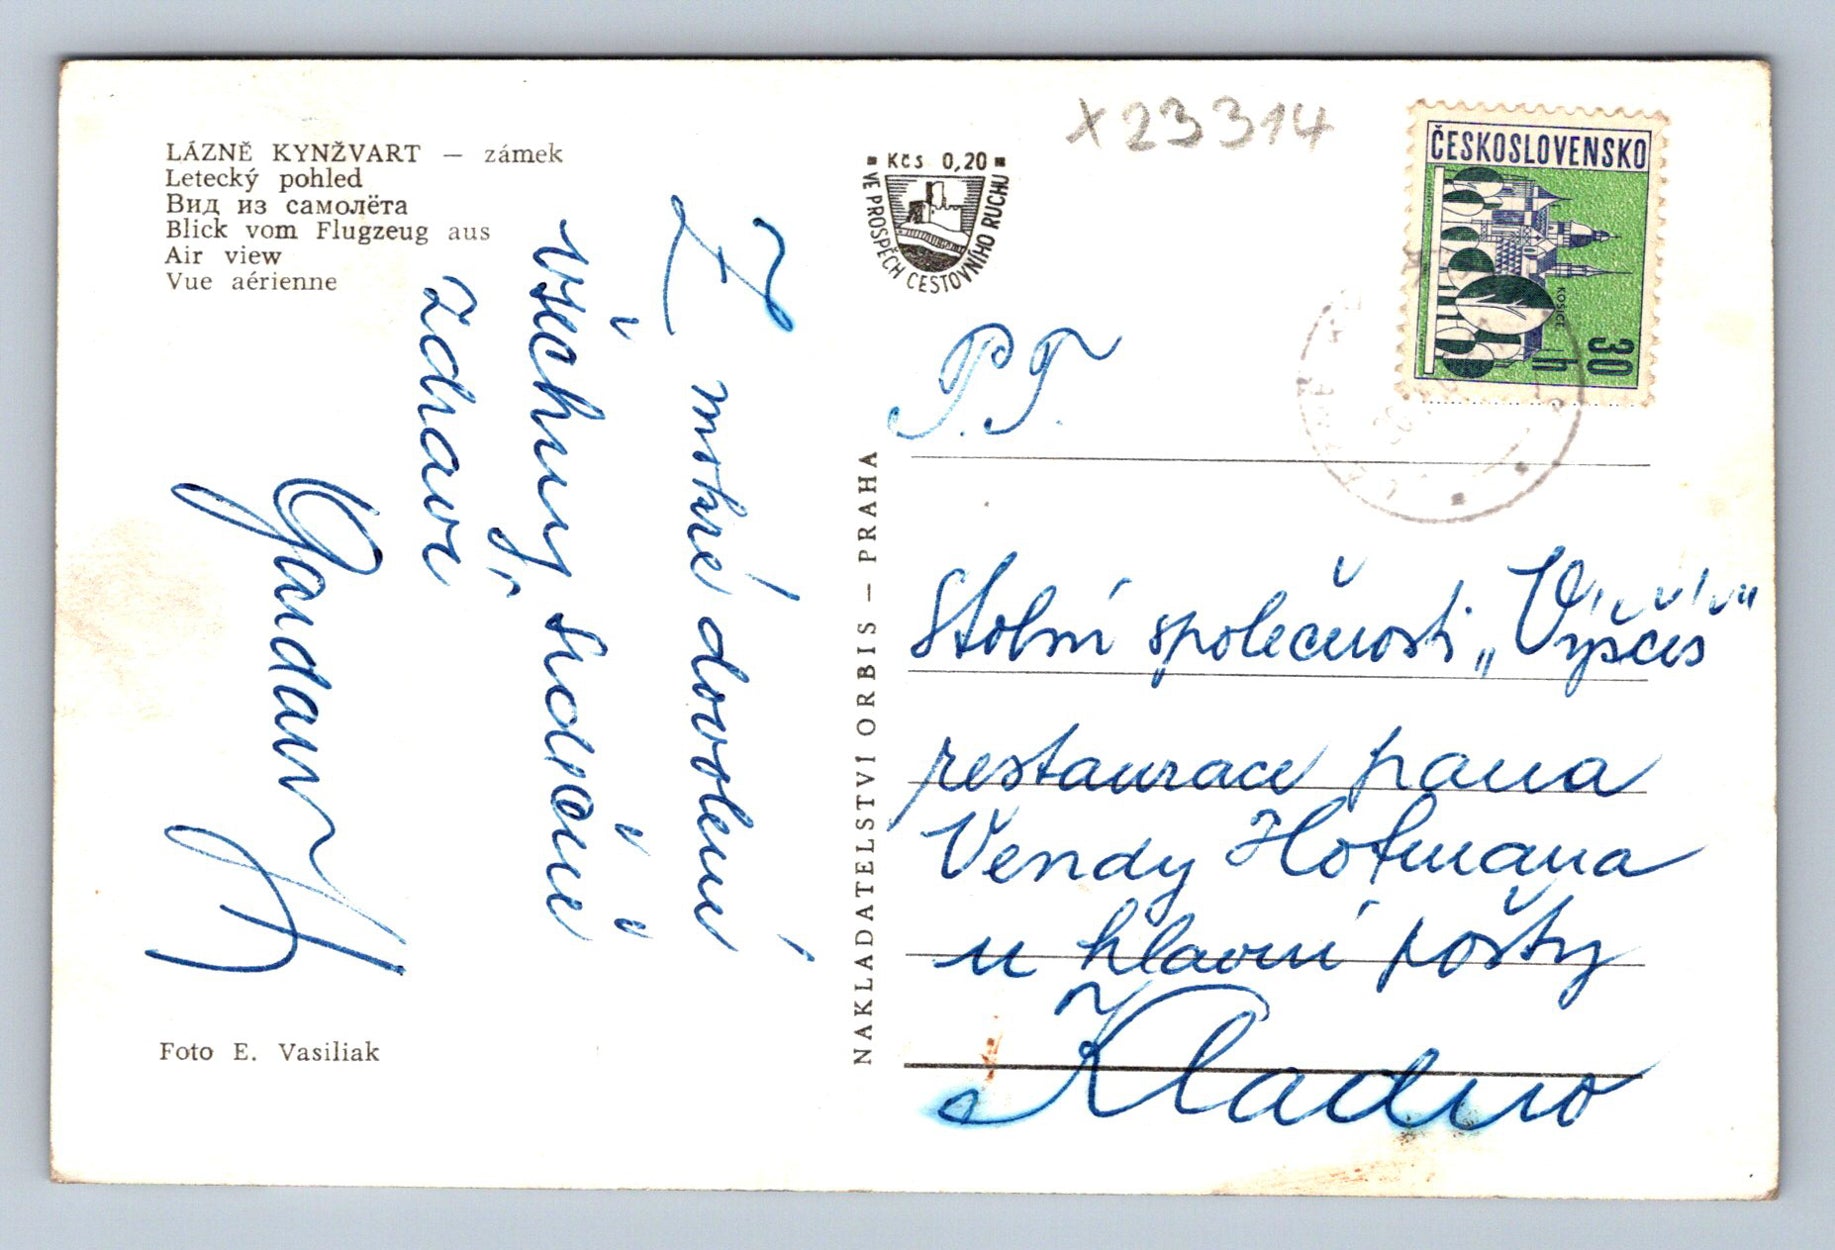 LÁZNĚ KYNŽVART – zámek
Letecký pohled
Вид из самолёта
Blick vom Flugzeug aus
Air view
Vue aérienne
Z mokré dovolené
všechny srdečně
zdraví
Foto E. Vasiliak
NAKLADATELSTVÍ ORBIS – PRAHA
Kčs 0,20
VE PROSPĚCH CESTOVNÍHO RUCHU
x 23314
ČESKOSLOVENSKO
KOŠICE
30 h
P.T.
Stolní společnosti „
restaurace pana
Vendy Hofmana
u hlavní pošty
Kladno